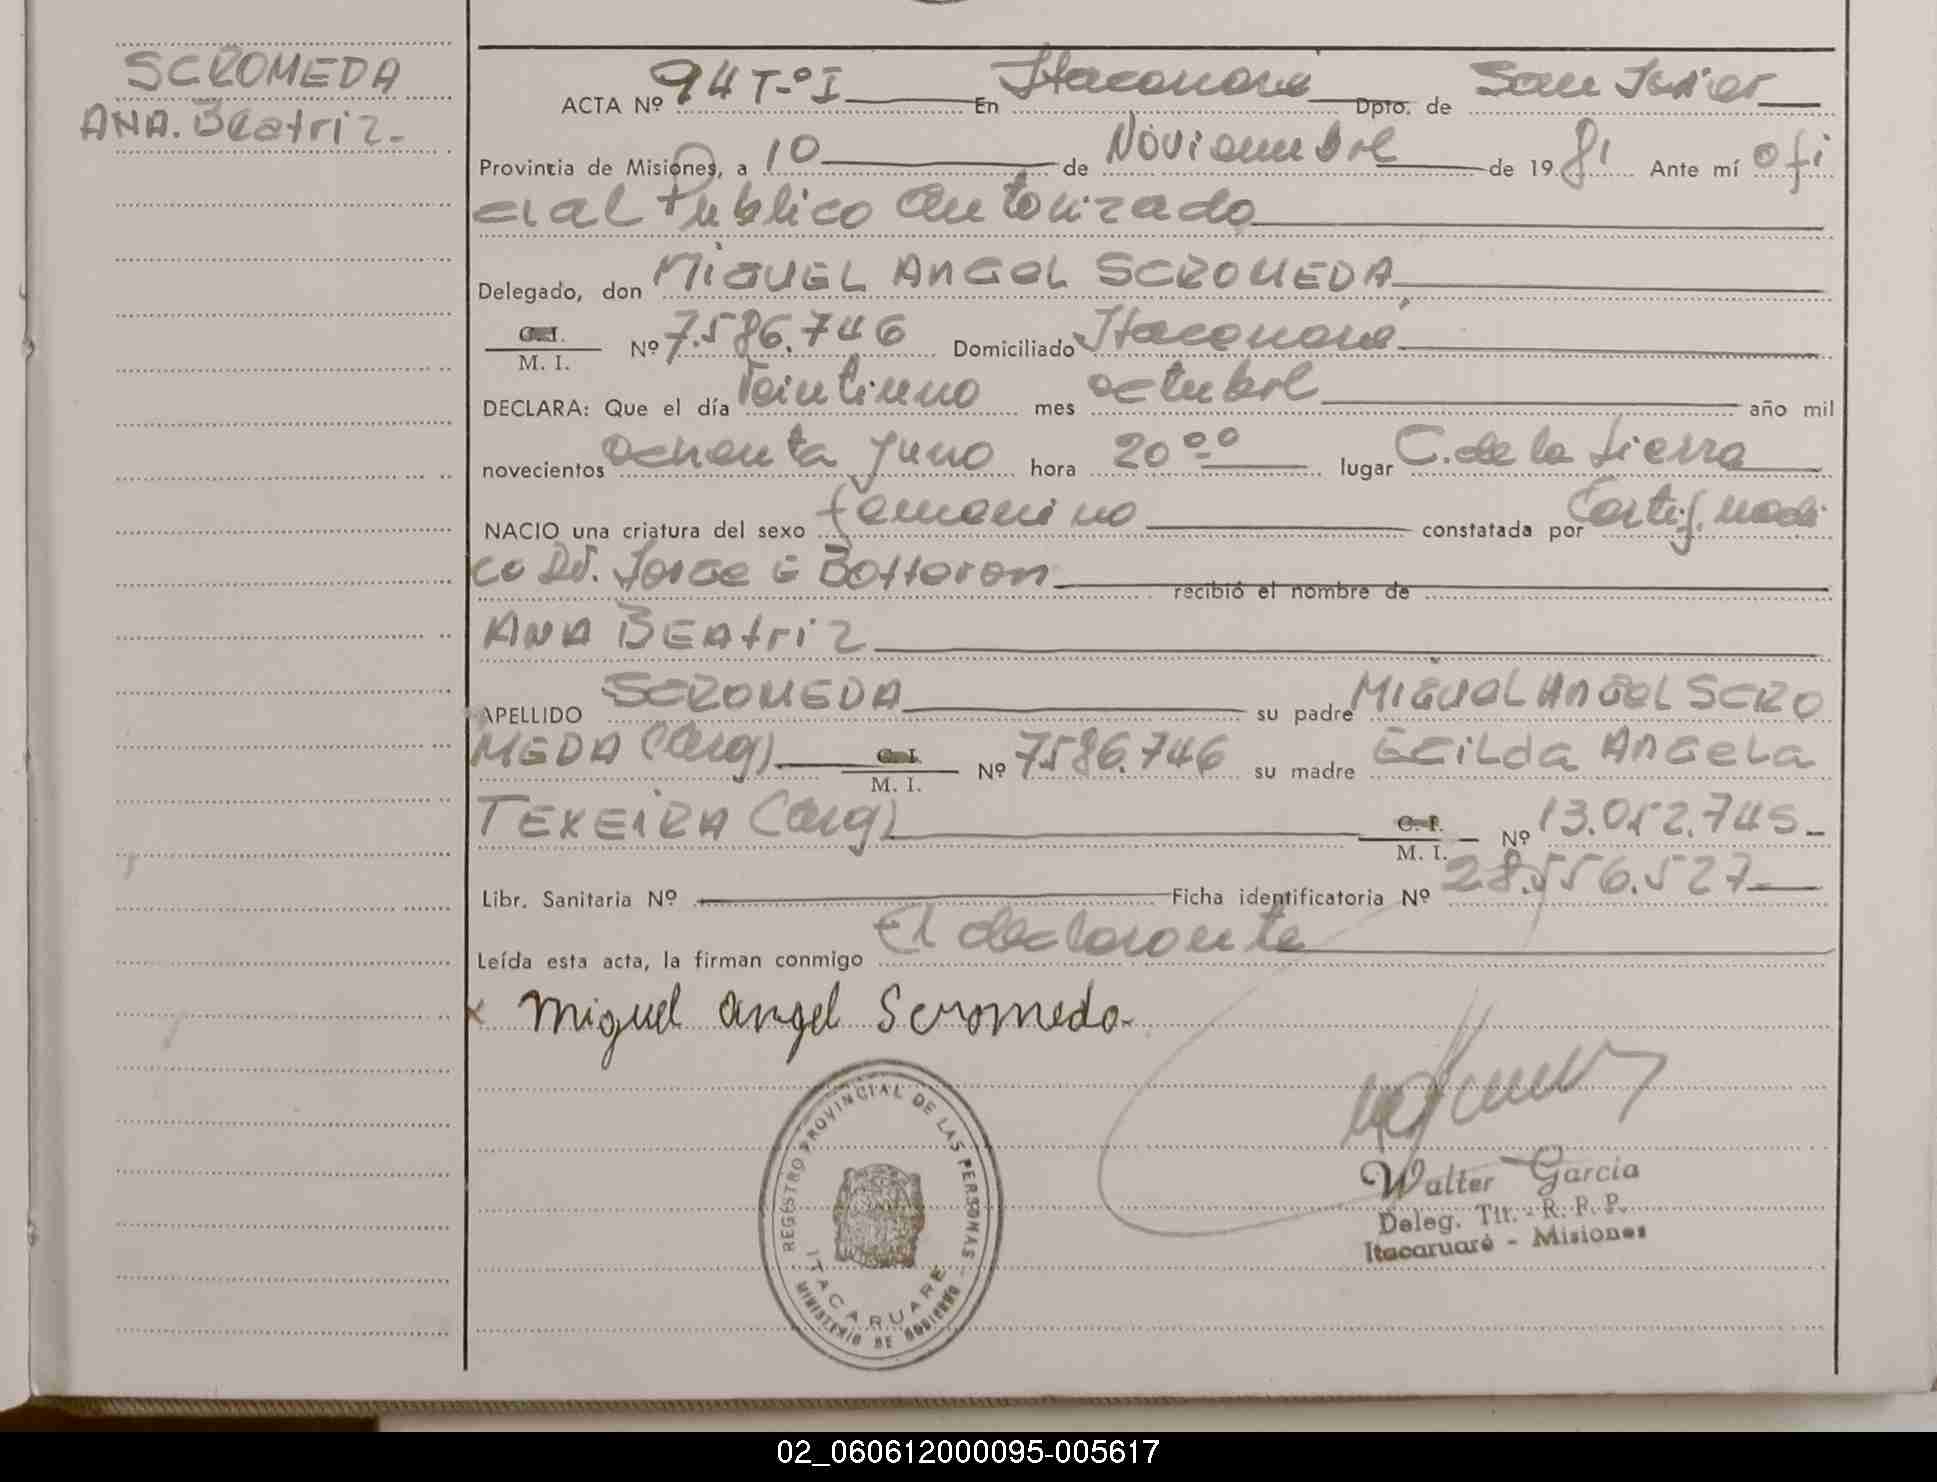 SCROMEDA
ANA. Beatriz-
ACTA Nº 94 T-º I En Itacaruaré Dpto. de San Javier
Provincia de Misiones, a 10 de Noviembre de 1981 Ante mí ofi
cial Público Autorizado
Delegado, don MIGUEL ANGEL SCROMEDA
C. I.
M. I. Nº 7.586.746 Domiciliado Itacaruaré
DECLARA: Que el día Veintiuno mes octubre año mil
novecientos ochenta y uno hora 20 ºº lugar C. de la Sierra
NACIO una criatura del sexo femenino constatada por Certif. medi
co Dr. Jorge G Bottaron recibió el nombre de
ANA BEAtriz
APELLIDO SCROMEDA su padre MIGUEL ANGEL SCRO
MEDA (arg) C. I. M. I. Nº 7586.746 su madre GCILDA ANGELA
TEXEIRA (arg) C. I. M. I. Nº 13.052.745-
Libr. Sanitaria Nº Ficha identificatoria Nº 28.556.527-
Leída esta acta, la firman conmigo El declarante
x Miguel angel Scromeda-
REGISTRO PROVINCIAL DE LAS PERSONAS
ITACARUARE
MINISTERIO DE GOBIERNO
Walter García
Deleg. Tit. - R. P. P.
Itacaruaré - Misiones
02_060612000095-005617